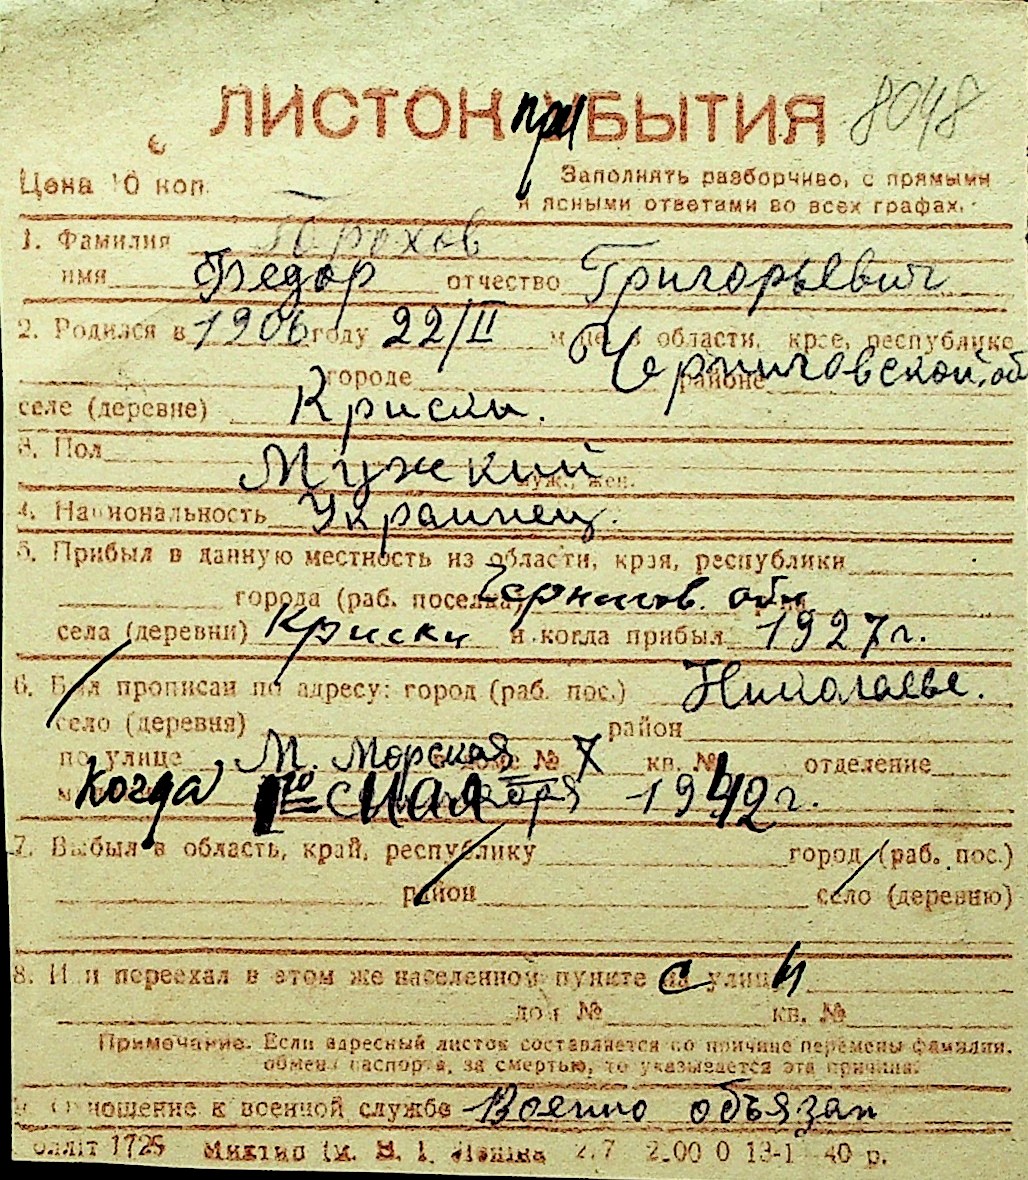 ЛИСТОК прИБЫТИЯ 8048
Цена 10 коп. Заполнять разборчиво, с прямыми
и ясными ответами во всех графах.
1. Фамилия Горохов
имя Федор отчество Григорьевич
2. Родился в 1906 году 22/II м-це в области, крае, республике
городе Черниговской об районе
селе (деревне) Криски.
3. Пол Мужской
муж., жен.
4. Национальность Украинец.
5. Прибыл в данную местность из области, края, республики
города (раб. поселка) Чернигов. обл
села (деревни) Криски и когда прибыл 1927 г.
6. Был прописан по адресу: город (раб. пос.) Николаеве.
село (деревня) район
по улице М. Морская № 7 кв. № отделение
когда 1го мая 1942 г.
7. Выбыл в область, край, республику город (раб. пос.)
район село (деревню)
8. Или переехал в этом же населенном пункте с улицы
дом № кв. №
Примечание. Если адресный листок составляется по причине перемены фамилии,
обмена паспорта, за смертью, то указывается эта причина.
9. Отношение к военной службе Военно объязан
1725 ім. 40 р.